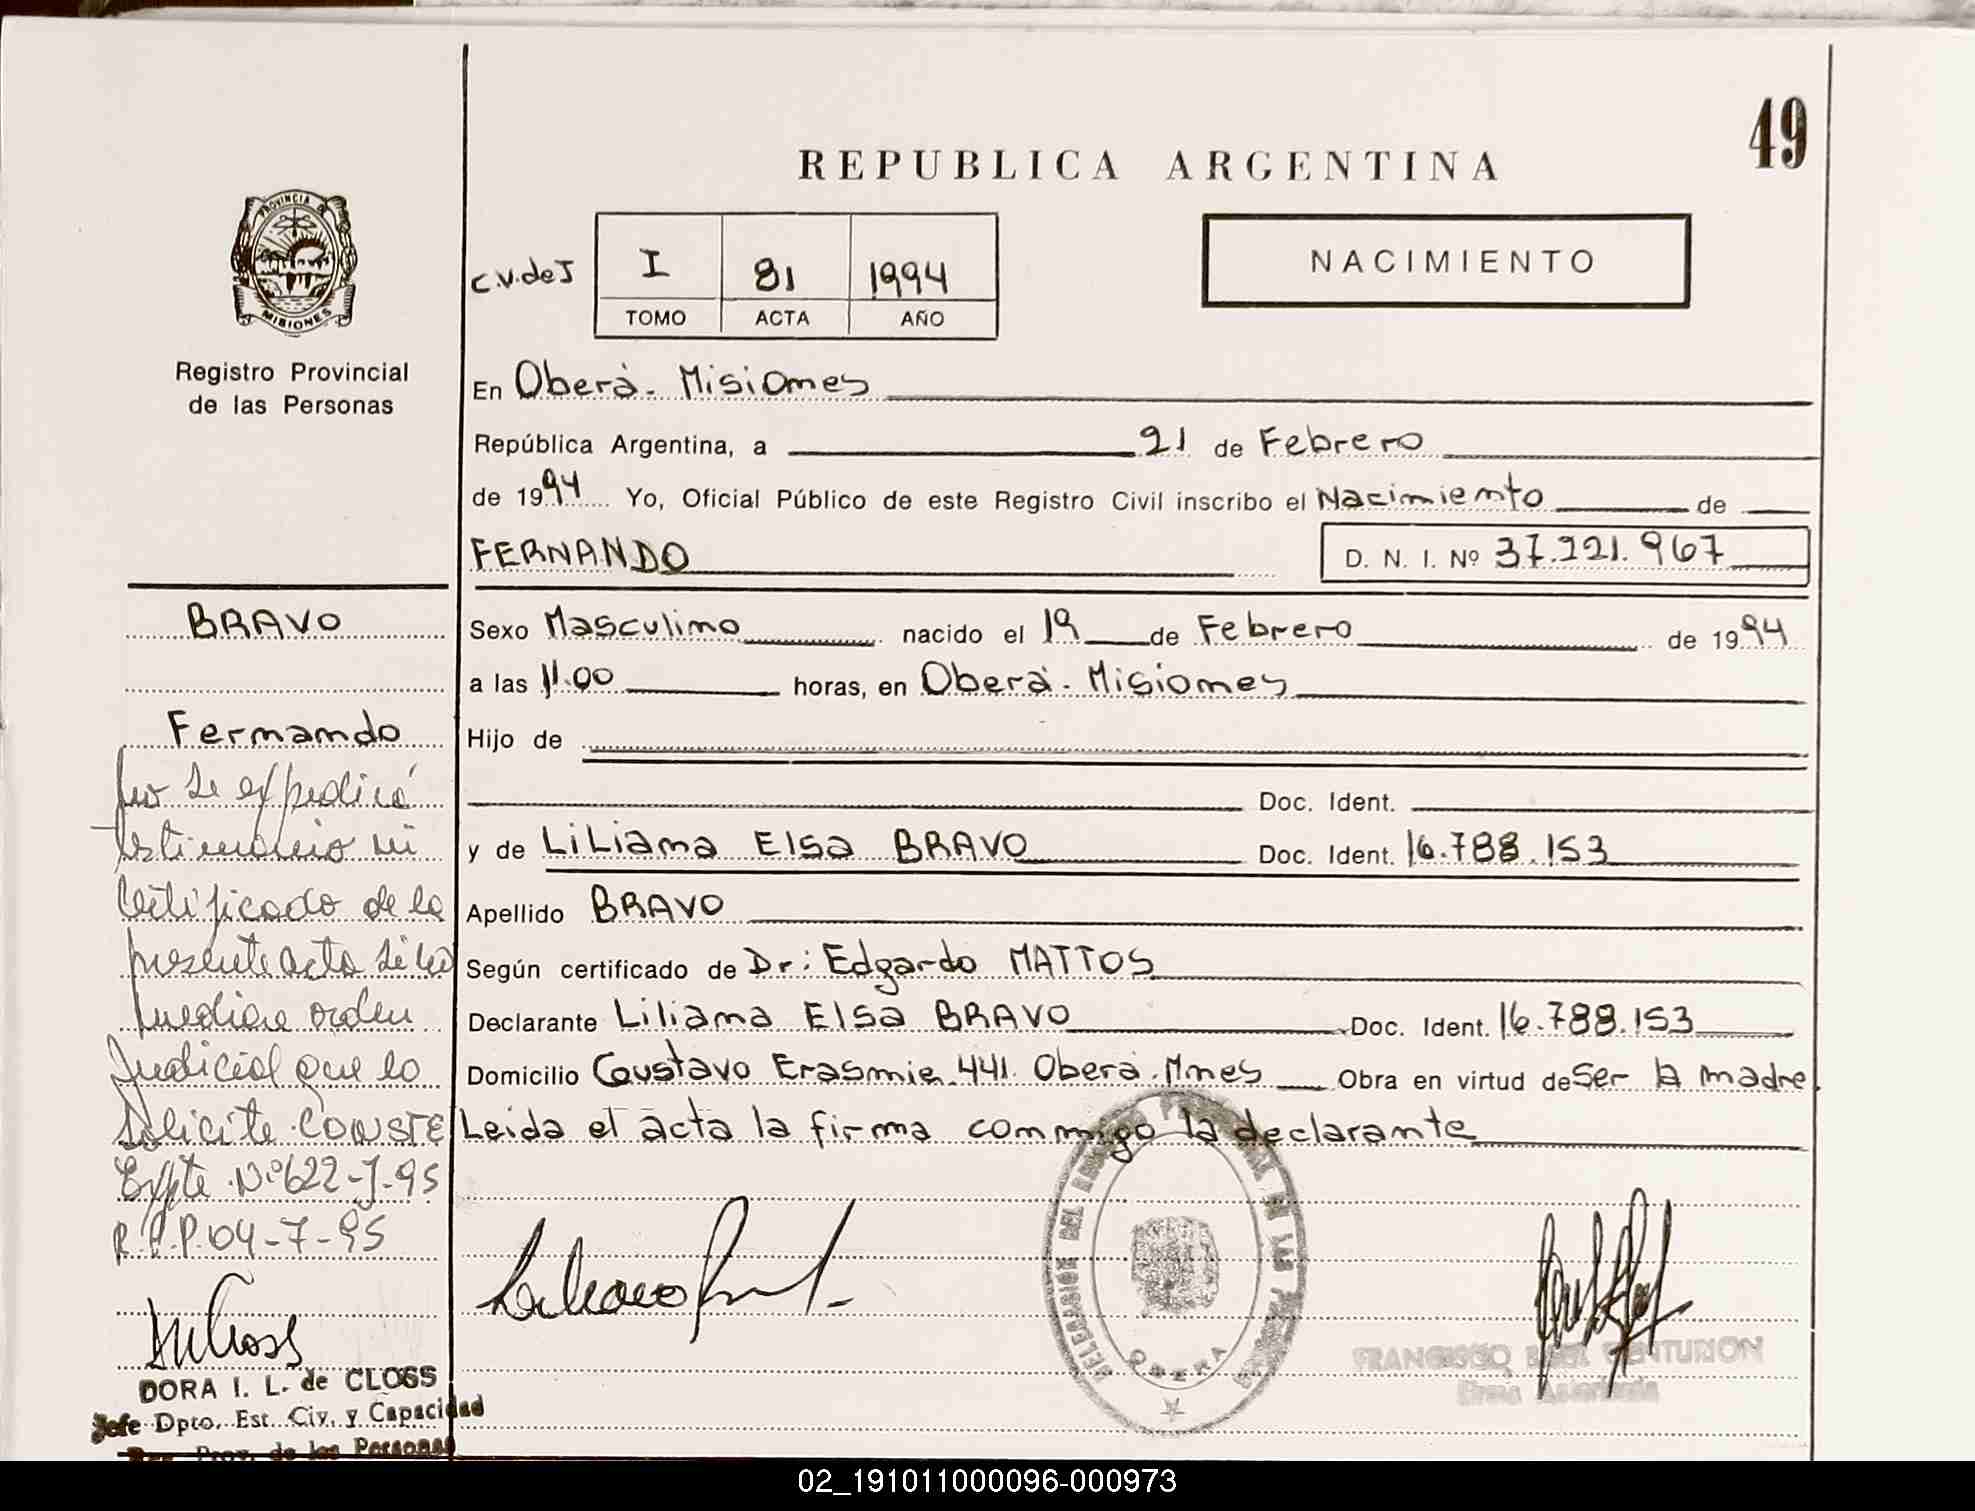 49
REPUBLICA ARGENTINA
PROVINCIA DE
MISIONES
Registro Provincial
de las Personas
C.V. de J
I 81 1994
TOMO ACTA AÑO
NACIMIENTO
En Oberá - Misiones
República Argentina, a 21 de Febrero
de 1994 Yo, Oficial Público de este Registro Civil inscribo el Nacimiento de
FERNANDO D. N. I. Nº 37.221.967
Sexo Masculino nacido el 19 de Febrero de 1994
a las 11.00 horas, en Oberá - Misiones
Hijo de
Doc. Ident.
y de Liliana Elsa BRAVO Doc. Ident. 16.788.153
Apellido BRAVO
Según certificado de Dr: Edgardo MATTOS
Declarante Liliana Elsa BRAVO Doc. Ident. 16.788.153
Domicilio Gustavo Erasmie 441. Oberá. Mnes Obra en virtud de ser la madre.
Leida el acta la firma conmigo la declarante
BRAVO
Fernando
No se expedirá
testimonio ni
certificado de la
presente acta si no
mediare orden
Judicial que lo
solicite. CONSTE
Expte. Nº 622-J-95
R.P.P. 04-7-95
DORA I. L. de CLOSS
Jefe Dpto. Est. Civ. y Capacidad
Reg. Prov. de las Personas
DELEGACION DEL REGISTRO PROVINCIAL DE LAS PERSONAS
OBERA
FRANCISCO CENTURION
Firma Autorizada
02_191011000096-000973